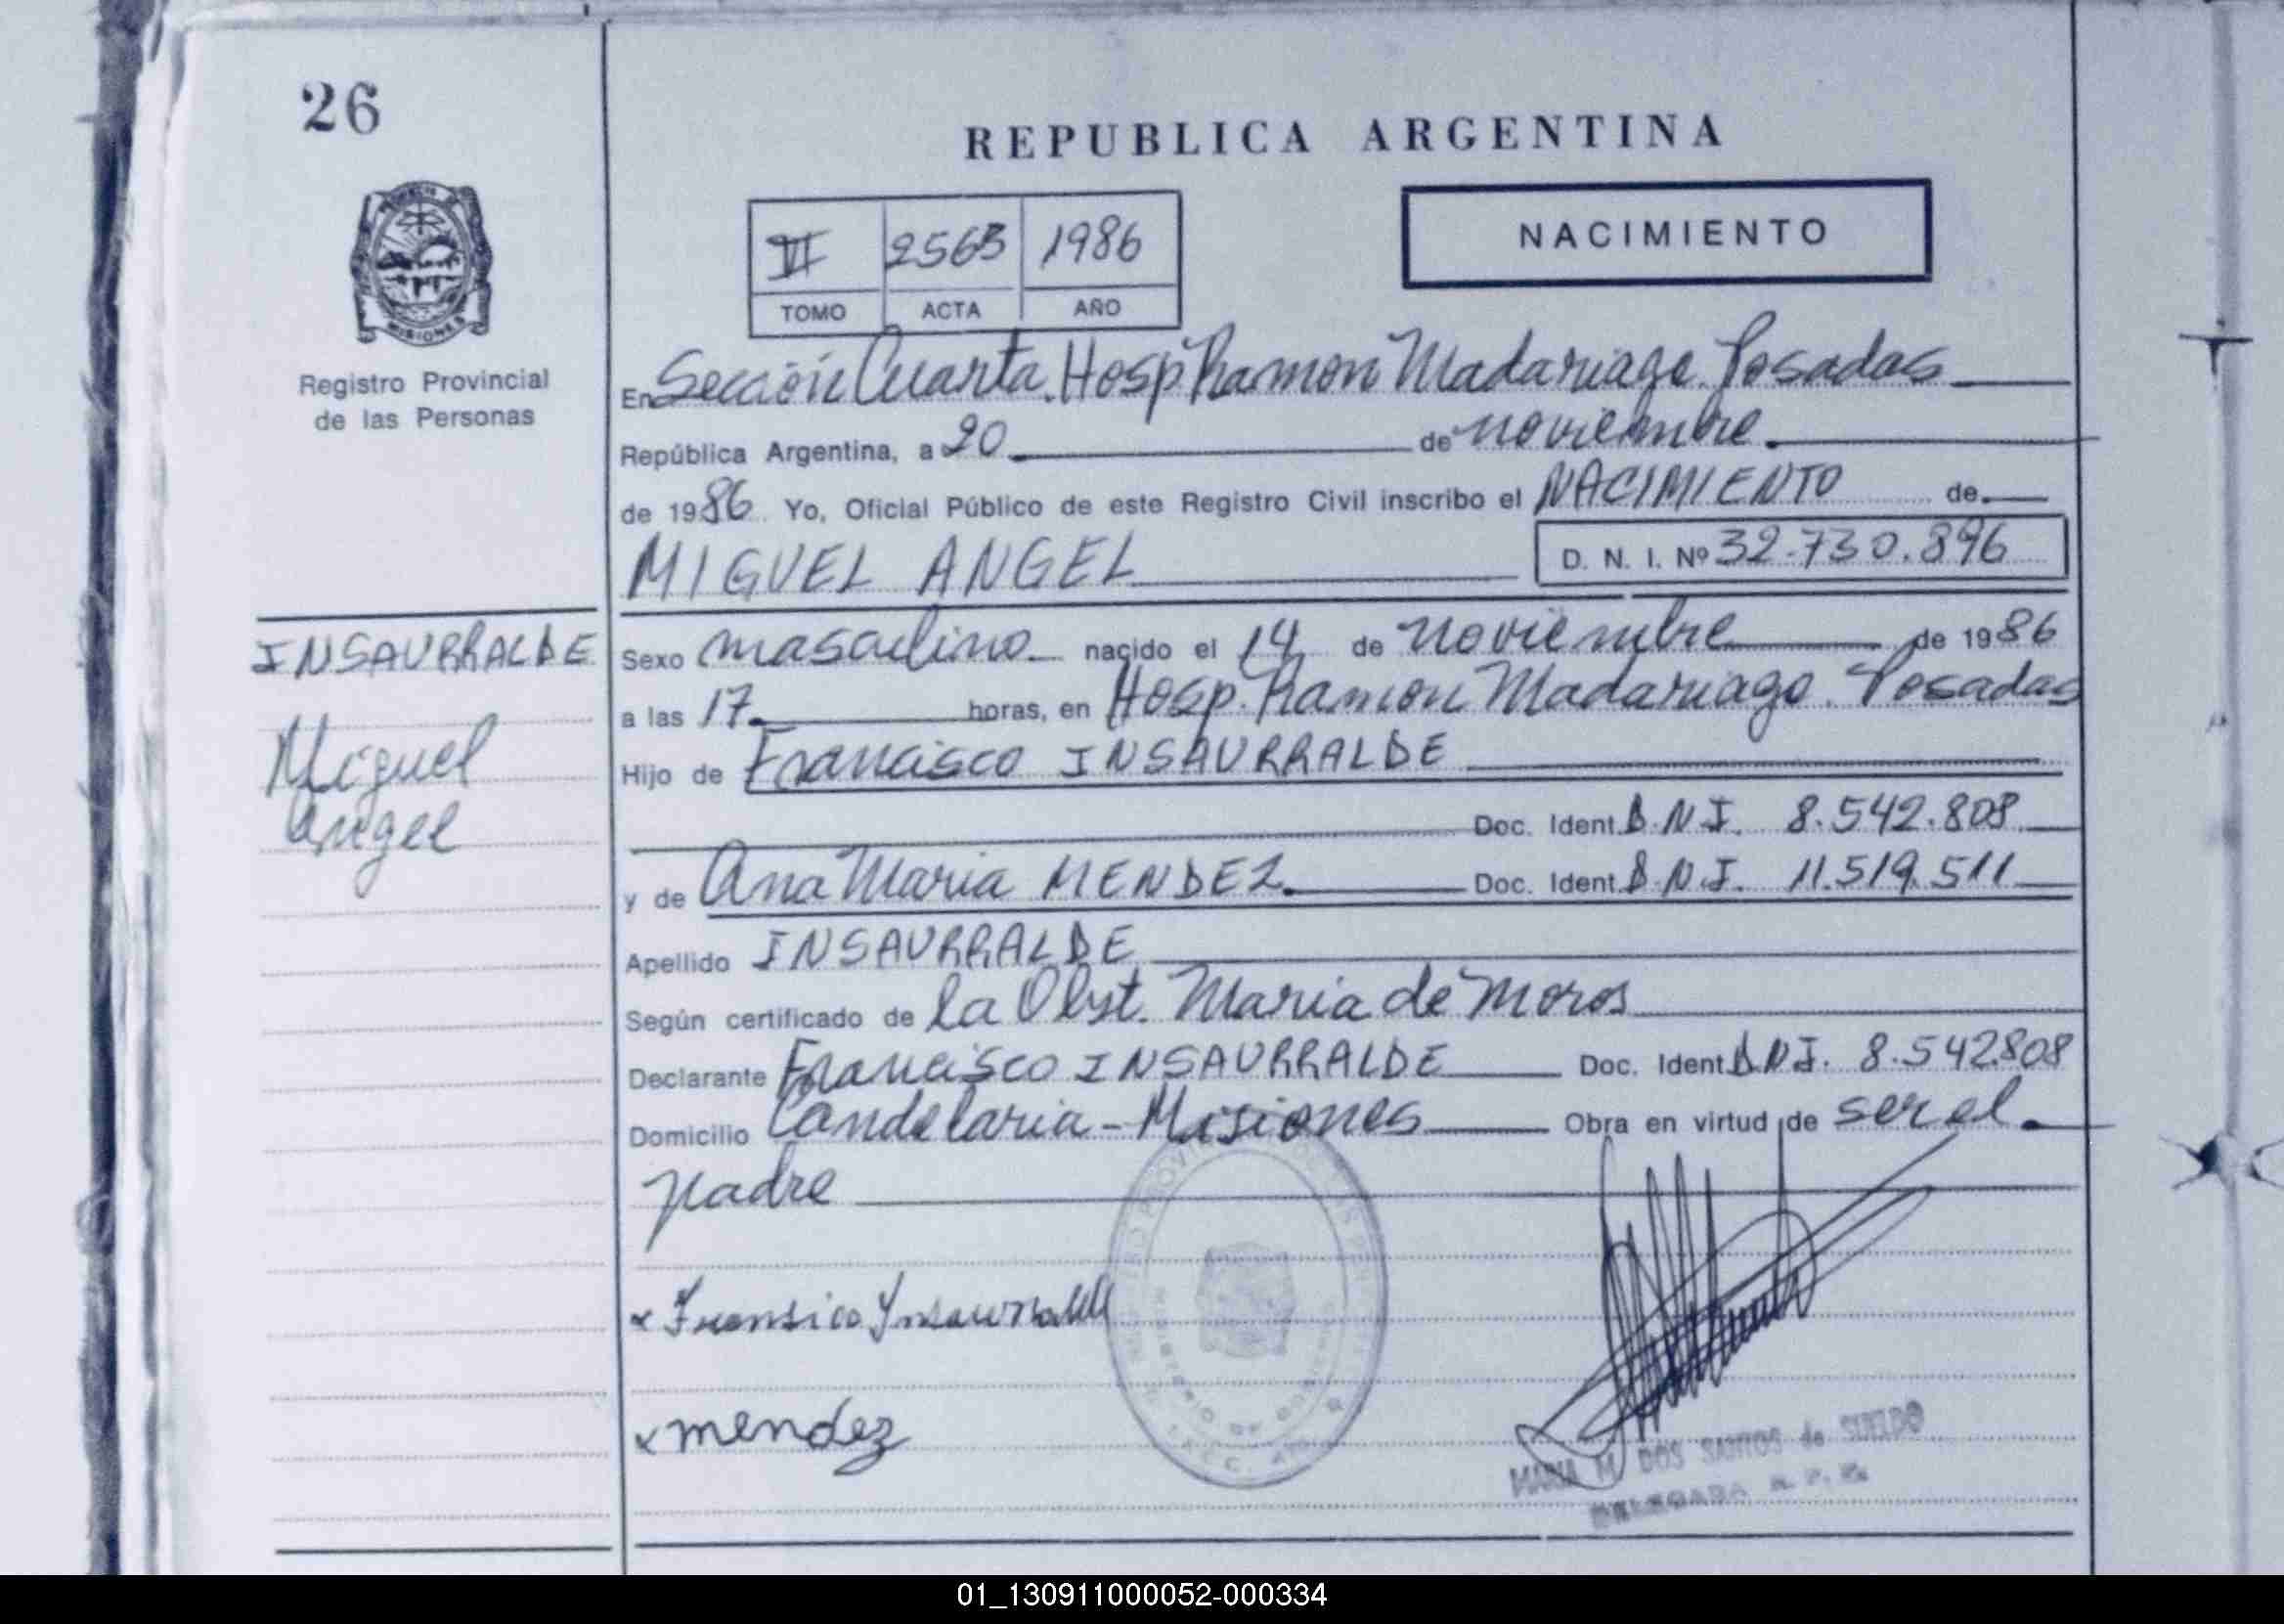 26
REPUBLICA ARGENTINA
VI 2563 1986
TOMO ACTA AÑO
NACIMIENTO
MISIONES
Registro Provincial
de las Personas
En Sección Cuarta. Hosp Ramon Madariaga. Posadas
República Argentina, a 20 de noviembre
de 1986 Yo, Oficial Público de este Registro Civil inscribo el NACIMIENTO de
MIGUEL ANGEL D. N. I. Nº 32.730.896
INSAURRALDE
Miguel
Angel
Sexo masculino nacido el 14 de noviembre de 1986
a las 17 horas, en Hosp. Ramon Madariaga. Posadas
Hijo de Francisco INSAURRALDE
Doc. Ident. D.N.I. 8.542.808
y de Ana Maria MENDEZ Doc. Ident. D.N.I. 11.519.511
Apellido INSAURRALDE
Según certificado de la Obst. Maria de Moros
Declarante Francisco INSAURRALDE Doc. Ident. D.N.I. 8.542.808
Domicilio Candelaria - Misiones Obra en virtud de ser el
padre
x Fransico Ynsaurralde
x mendez
MARIA M. DOS SANTOS de SUELDO
DELEGADA R. P. P.
01_130911000052-000334